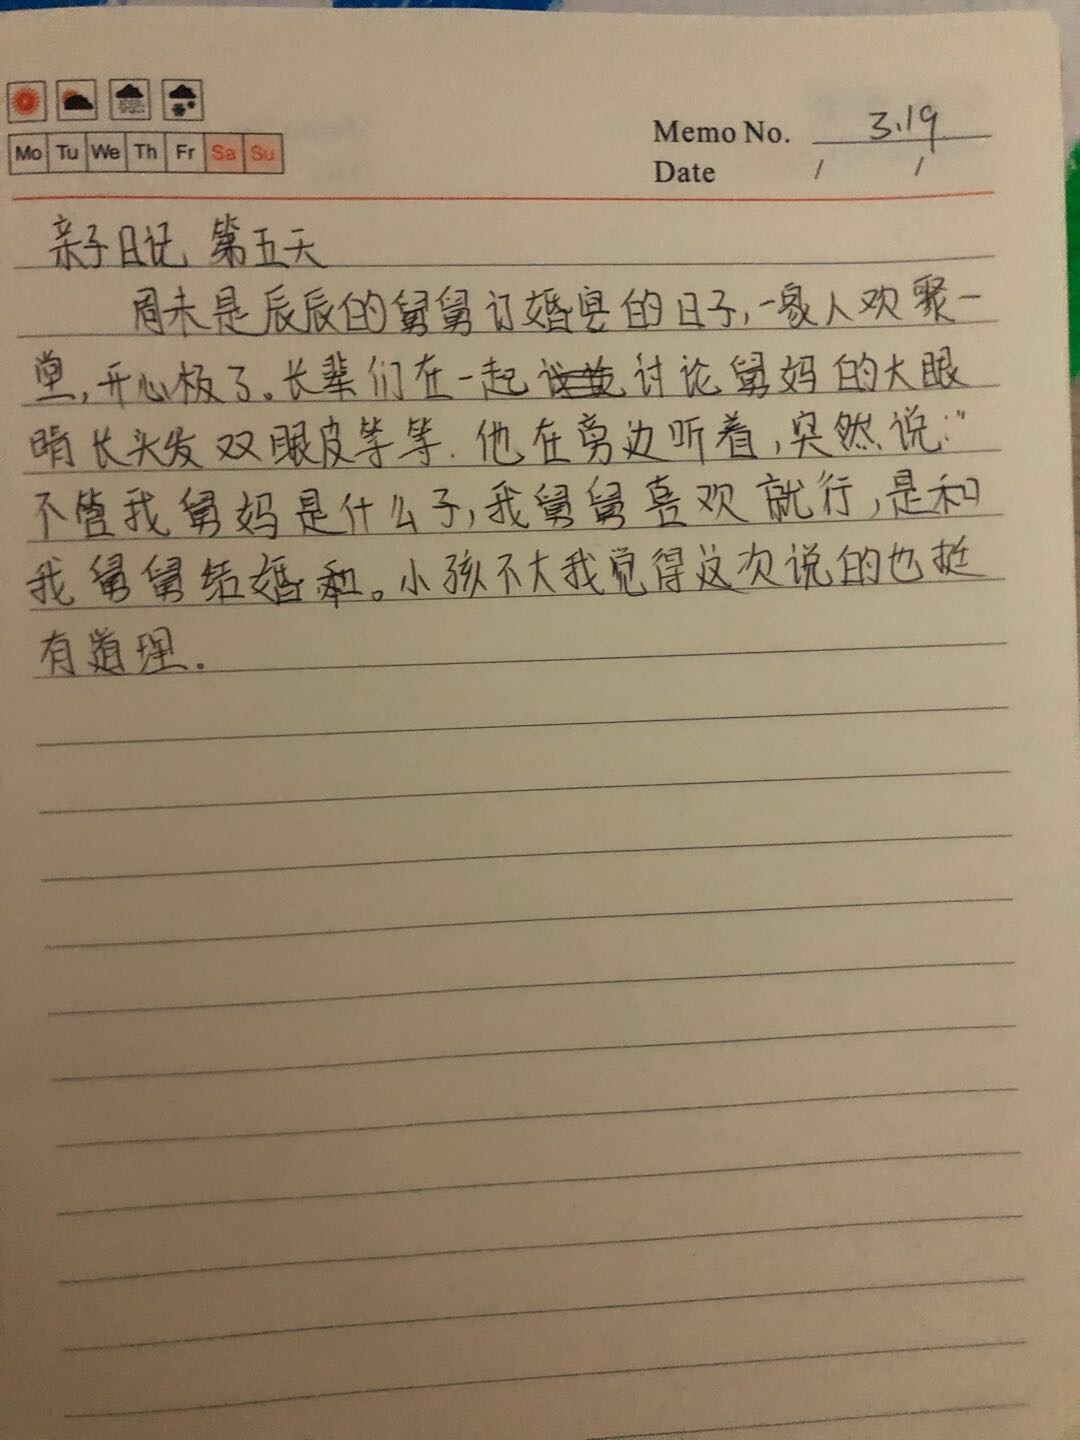 Mo Tu We Th Fr Sa Su
Memo No. 3.19
Date / /
亲子日记 第五天
周末是辰辰的舅舅订婚宴的日子,一家人欢聚一
堂,开心极了。长辈们在一起讨论舅妈的大眼
睛长头发双眼皮等等.他在旁边听着,突然说:“
不管我舅妈是什么子,我舅舅喜欢就行,是和
我舅舅结婚。小孩不大我觉得这次说的也挺
有道理.